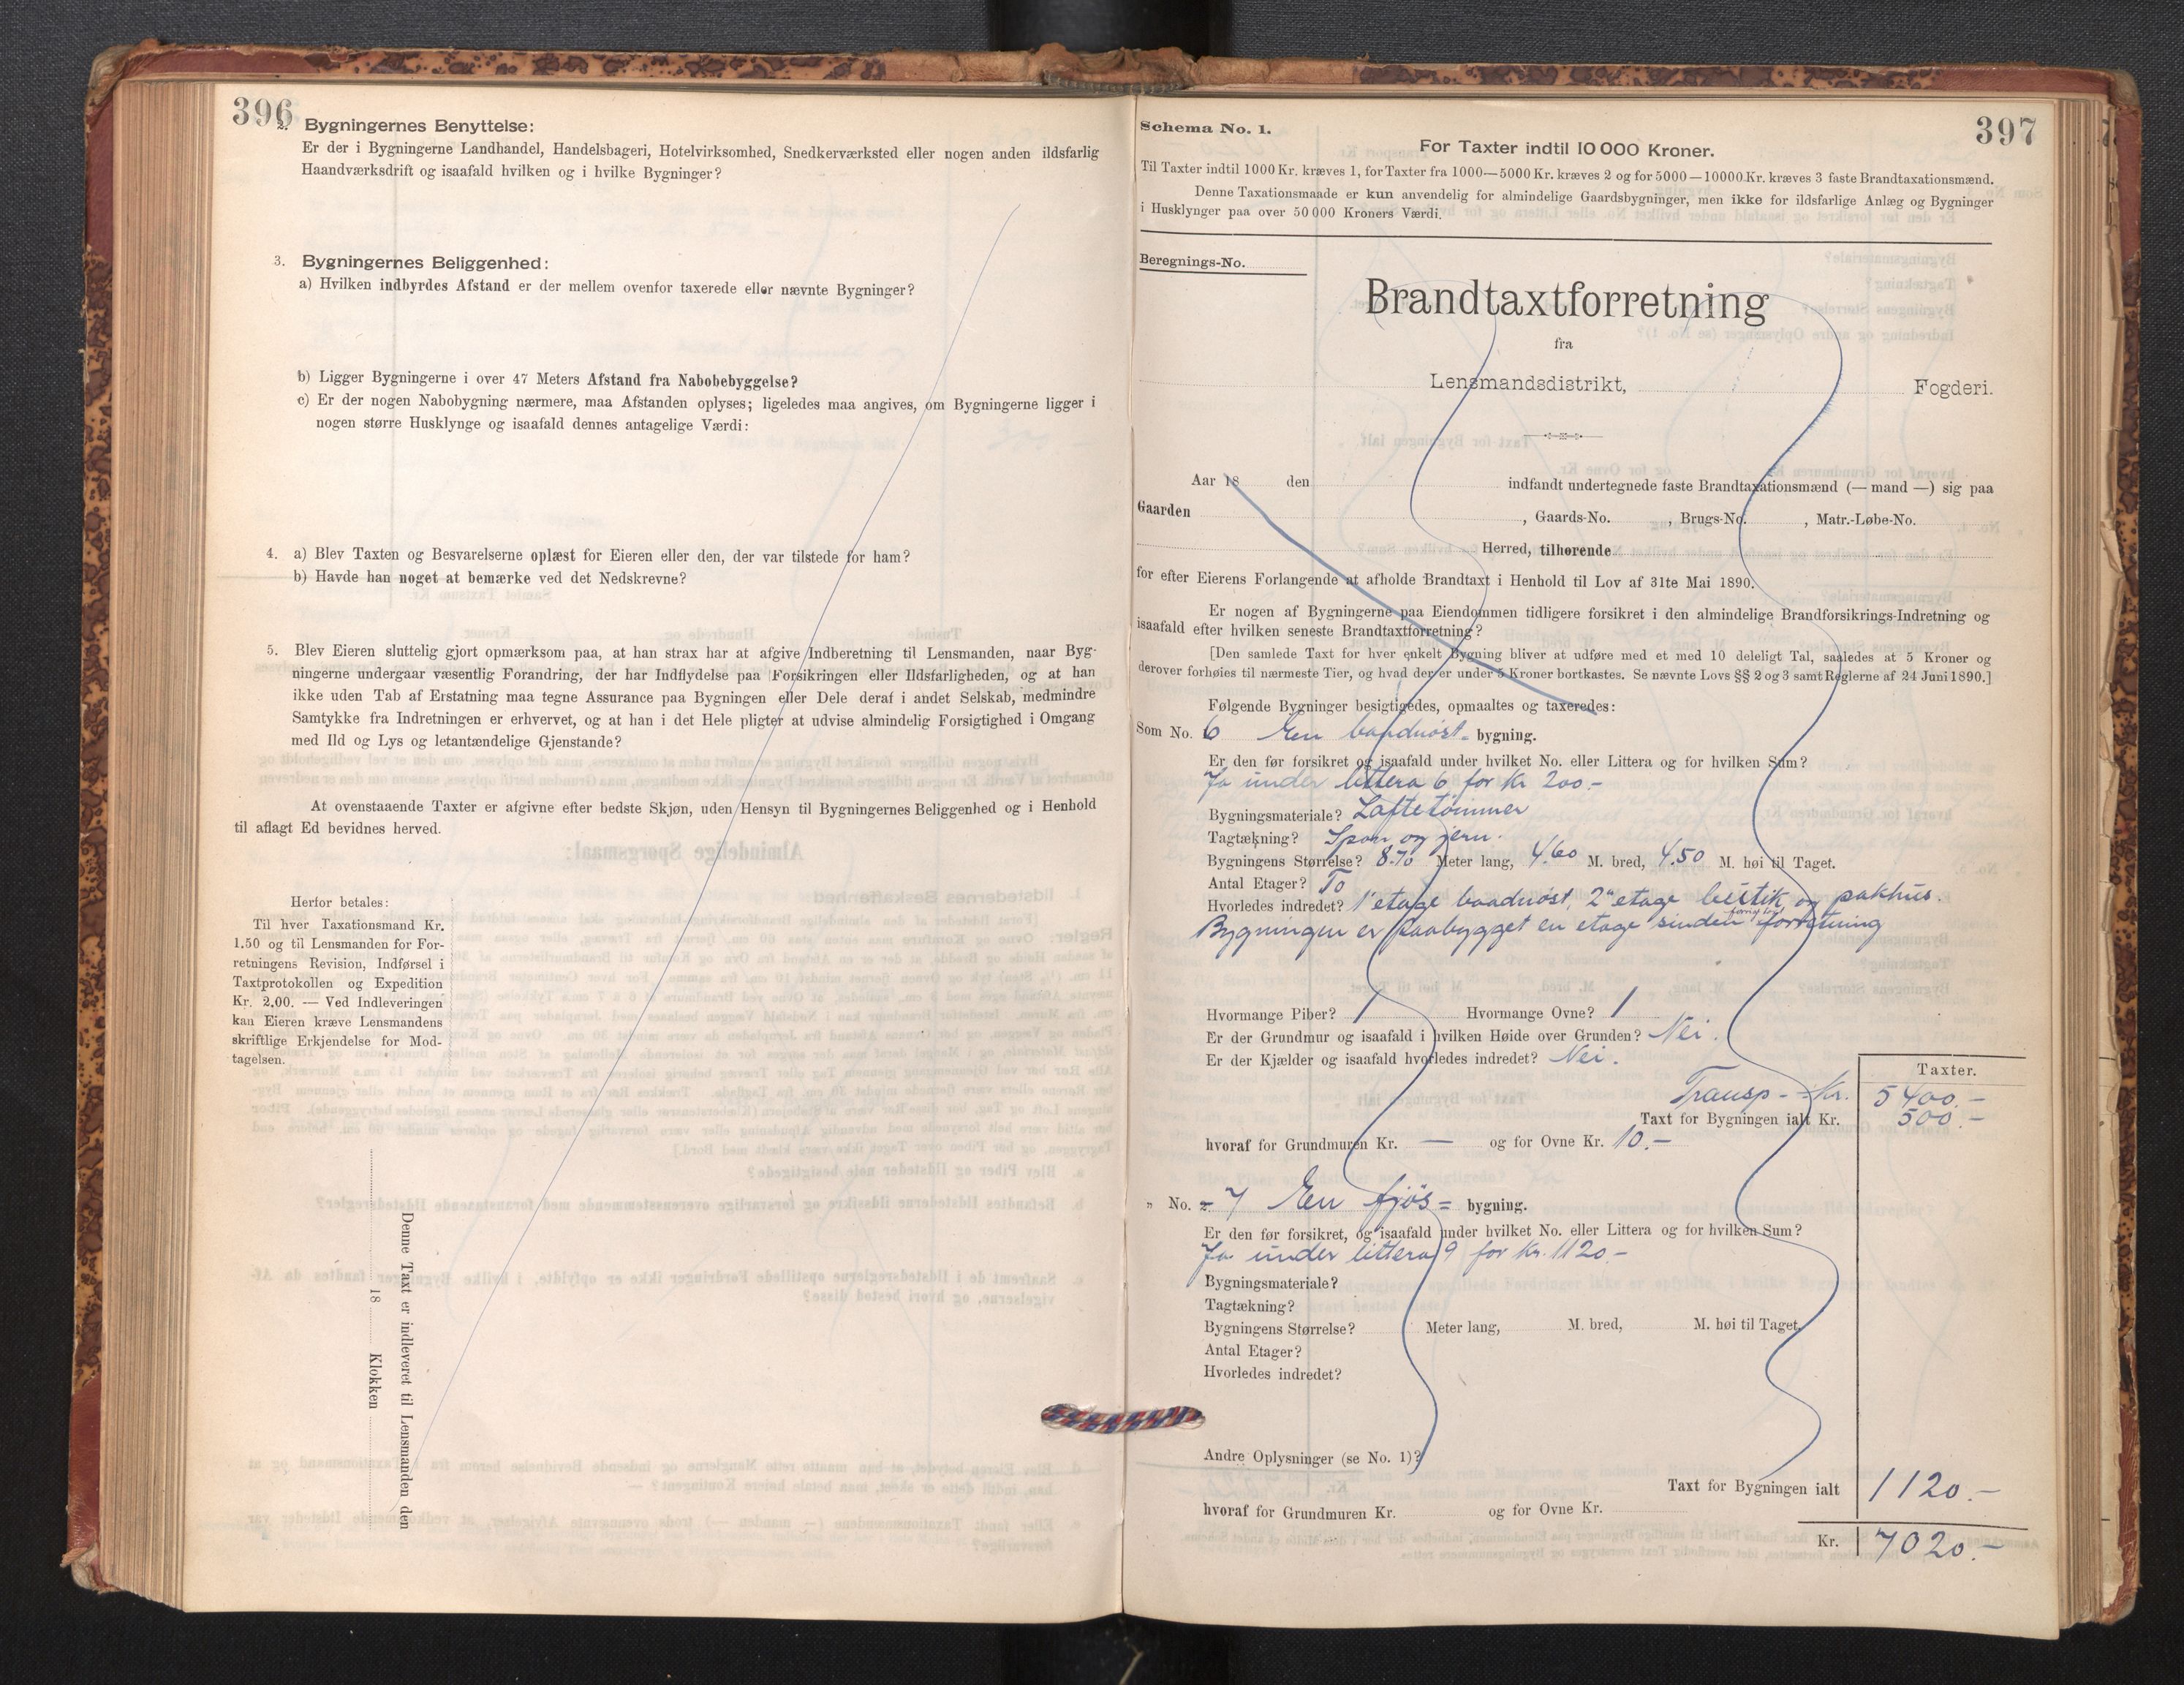 396
2. Bygningernes Benyttelse:
Er der i Bygningerne Landhandel, Handelsbageri, Hotelvirksomhed, Snedkerværksted eller nogen anden ildsfarlig
Haandværksdrift og isaafald hvilken og i hvilke Bygninger?
3. Bygningernes Beliggenhed:
a) Hvilken indbyrdes Afstand er der mellem ovenfor taxerede eller nævnte Bygninger?
b) Ligger Bygningerne i over 47 Meters Afstand fra Nabobebyggelse?
c) Er der nogen Nabobygning nærmere, maa Afstanden oplyses; ligeledes maa angives, om Bygningerne ligger i
nogen større Husklynge og isaafald dennes antagelige Værdi:
4. a) Blev Taxten og Besvarelserne oplæst for Eieren eller den, der var tilstede for ham?
b) Havde han noget at bemærke ved det Nedskrevne?
5. Blev Eieren sluttelig gjort opmærksom paa, at han strax har at afgive Indberetning til Lensmanden, naar Byg-
ningerne undergaar væsentlig Forandring, der har Indflydelse paa Forsikringen eller Ildsfarligheden, og at han
ikke uden Tab af Erstatning maa tegne Assurance paa Bygningen eller Dele deraf i andet Selskab, medmindre
Samtykke fra Indretningen er erhvervet, og at han i det Hele pligter at udvise almindelig Forsigtighed i Omgang
med Ild og Lys og letantændelige Gjenstande?
At ovenstaaende Taxter er afgivne efter bedste Skjøn, uden Hensyn til Bygningernes Beliggenhed og i Henhold
til aflagt Ed bevidnes herved.
Herfor betales:
Til hver Taxationsmand Kr.
1.50 og til Lensmanden for For-
retningens Revision, Indførsel i
Taxtprotokollen og Expedition
Kr. 2.00. — Ved Indleveringen
kan Eieren kræve Lensmandens
skriftlige Erkjendelse for Mod-
tagelsen.
Denne Taxt er indleveret til Lensmanden den
18 Klokken
397
Schema No. 1.
For Taxter indtil 10 000 Kroner.
Til Taxter indtil 1000 Kr. kræves 1, for Taxter fra 1000—5000 Kr. kræves 2 og for 5000—10000 Kr. kræves 3 faste Brandtaxationsmænd.
Denne Taxationsmaade er kun anvendelig for almindelige Gaardsbygninger, men ikke for ildsfarlige Anlæg og Bygninger
i Husklynger paa over 50 000 Kroners Værdi.
Beregnings-No.
Brandtaxtforretning
fra
Lensmandsdistrikt, Fogderi.
Aar 18 den indfandt undertegnede faste Brandtaxationsmænd (— mand —) sig paa
Gaarden , Gaards-No. , Brugs-No. , Matr.-Løbe-No.
Herred, tilhørende
for efter Eierens Forlangende at afholde Brandtaxt i Henhold til Lov af 31te Mai 1890.
Er nogen af Bygningerne paa Eiendommen tidligere forsikret i den almindelige Brandforsikrings-Indretning og
isaafald efter hvilken seneste Brandtaxtforretning?
[Den samlede Taxt for hver enkelt Bygning bliver at udføre med et med 10 deleligt Tal, saaledes at 5 Kroner og
derover forhøies til nærmeste Tier, og hvad der er under 5 Kroner bortkastes. Se nævnte Lovs §§ 2 og 3 samt Reglerne af 24 Juni 1890.]
Følgende Bygninger besigtigedes, opmaaltes og taxeredes:
Som No. 6 En baadnøst- bygning.
Er den før forsikret og isaafald under hvilket No. eller Littera og for hvilken Sum?
Ja under littera 6 for Kr 200.-
Bygningsmateriale? Laftetømmer
Tagtækning? Spon og jern.
Bygningens Størrelse? 8.70 Meter lang, 4.60 M. bred, 4.50 M. høi til Taget.
Antal Etager? To
Hvorledes indredet? 1' etage baadnøst, 2" etage og pakhus.
Bygningen er paabygget en etage sinden forrige forretning
Hvormange Piber? 1 Hvormange Ovne? 1
Er der Grundmur og isaafald i hvilken Høide over Grunden? Nei.
Er der Kjælder og isaafald hvorledes indredet? Nei.
Taxter.
Transp - Kr. 5400.-
Taxt for Bygningen ialt Kr. 500.-
hvoraf for Grundmuren Kr. — og for Ovne Kr. 10.-
" No. 7 En fjös= bygning.
Er den før forsikret, og isaafald under hvilket No. eller Littera og for hvilken Sum?
Ja under littera 9 for Kr. 1120-
Bygningsmateriale?
Tagtækning?
Bygningens Størrelse? Meter lang, M. bred, M. høi til Taget.
Antal Etager?
Hvorledes indredet?
Andre Oplysninger (se No. 1)?
Taxt for Bygningen ialt 1120.-
hvoraf for Grundmuren Kr. og for Ovne Kr.
Kr. 7020.-